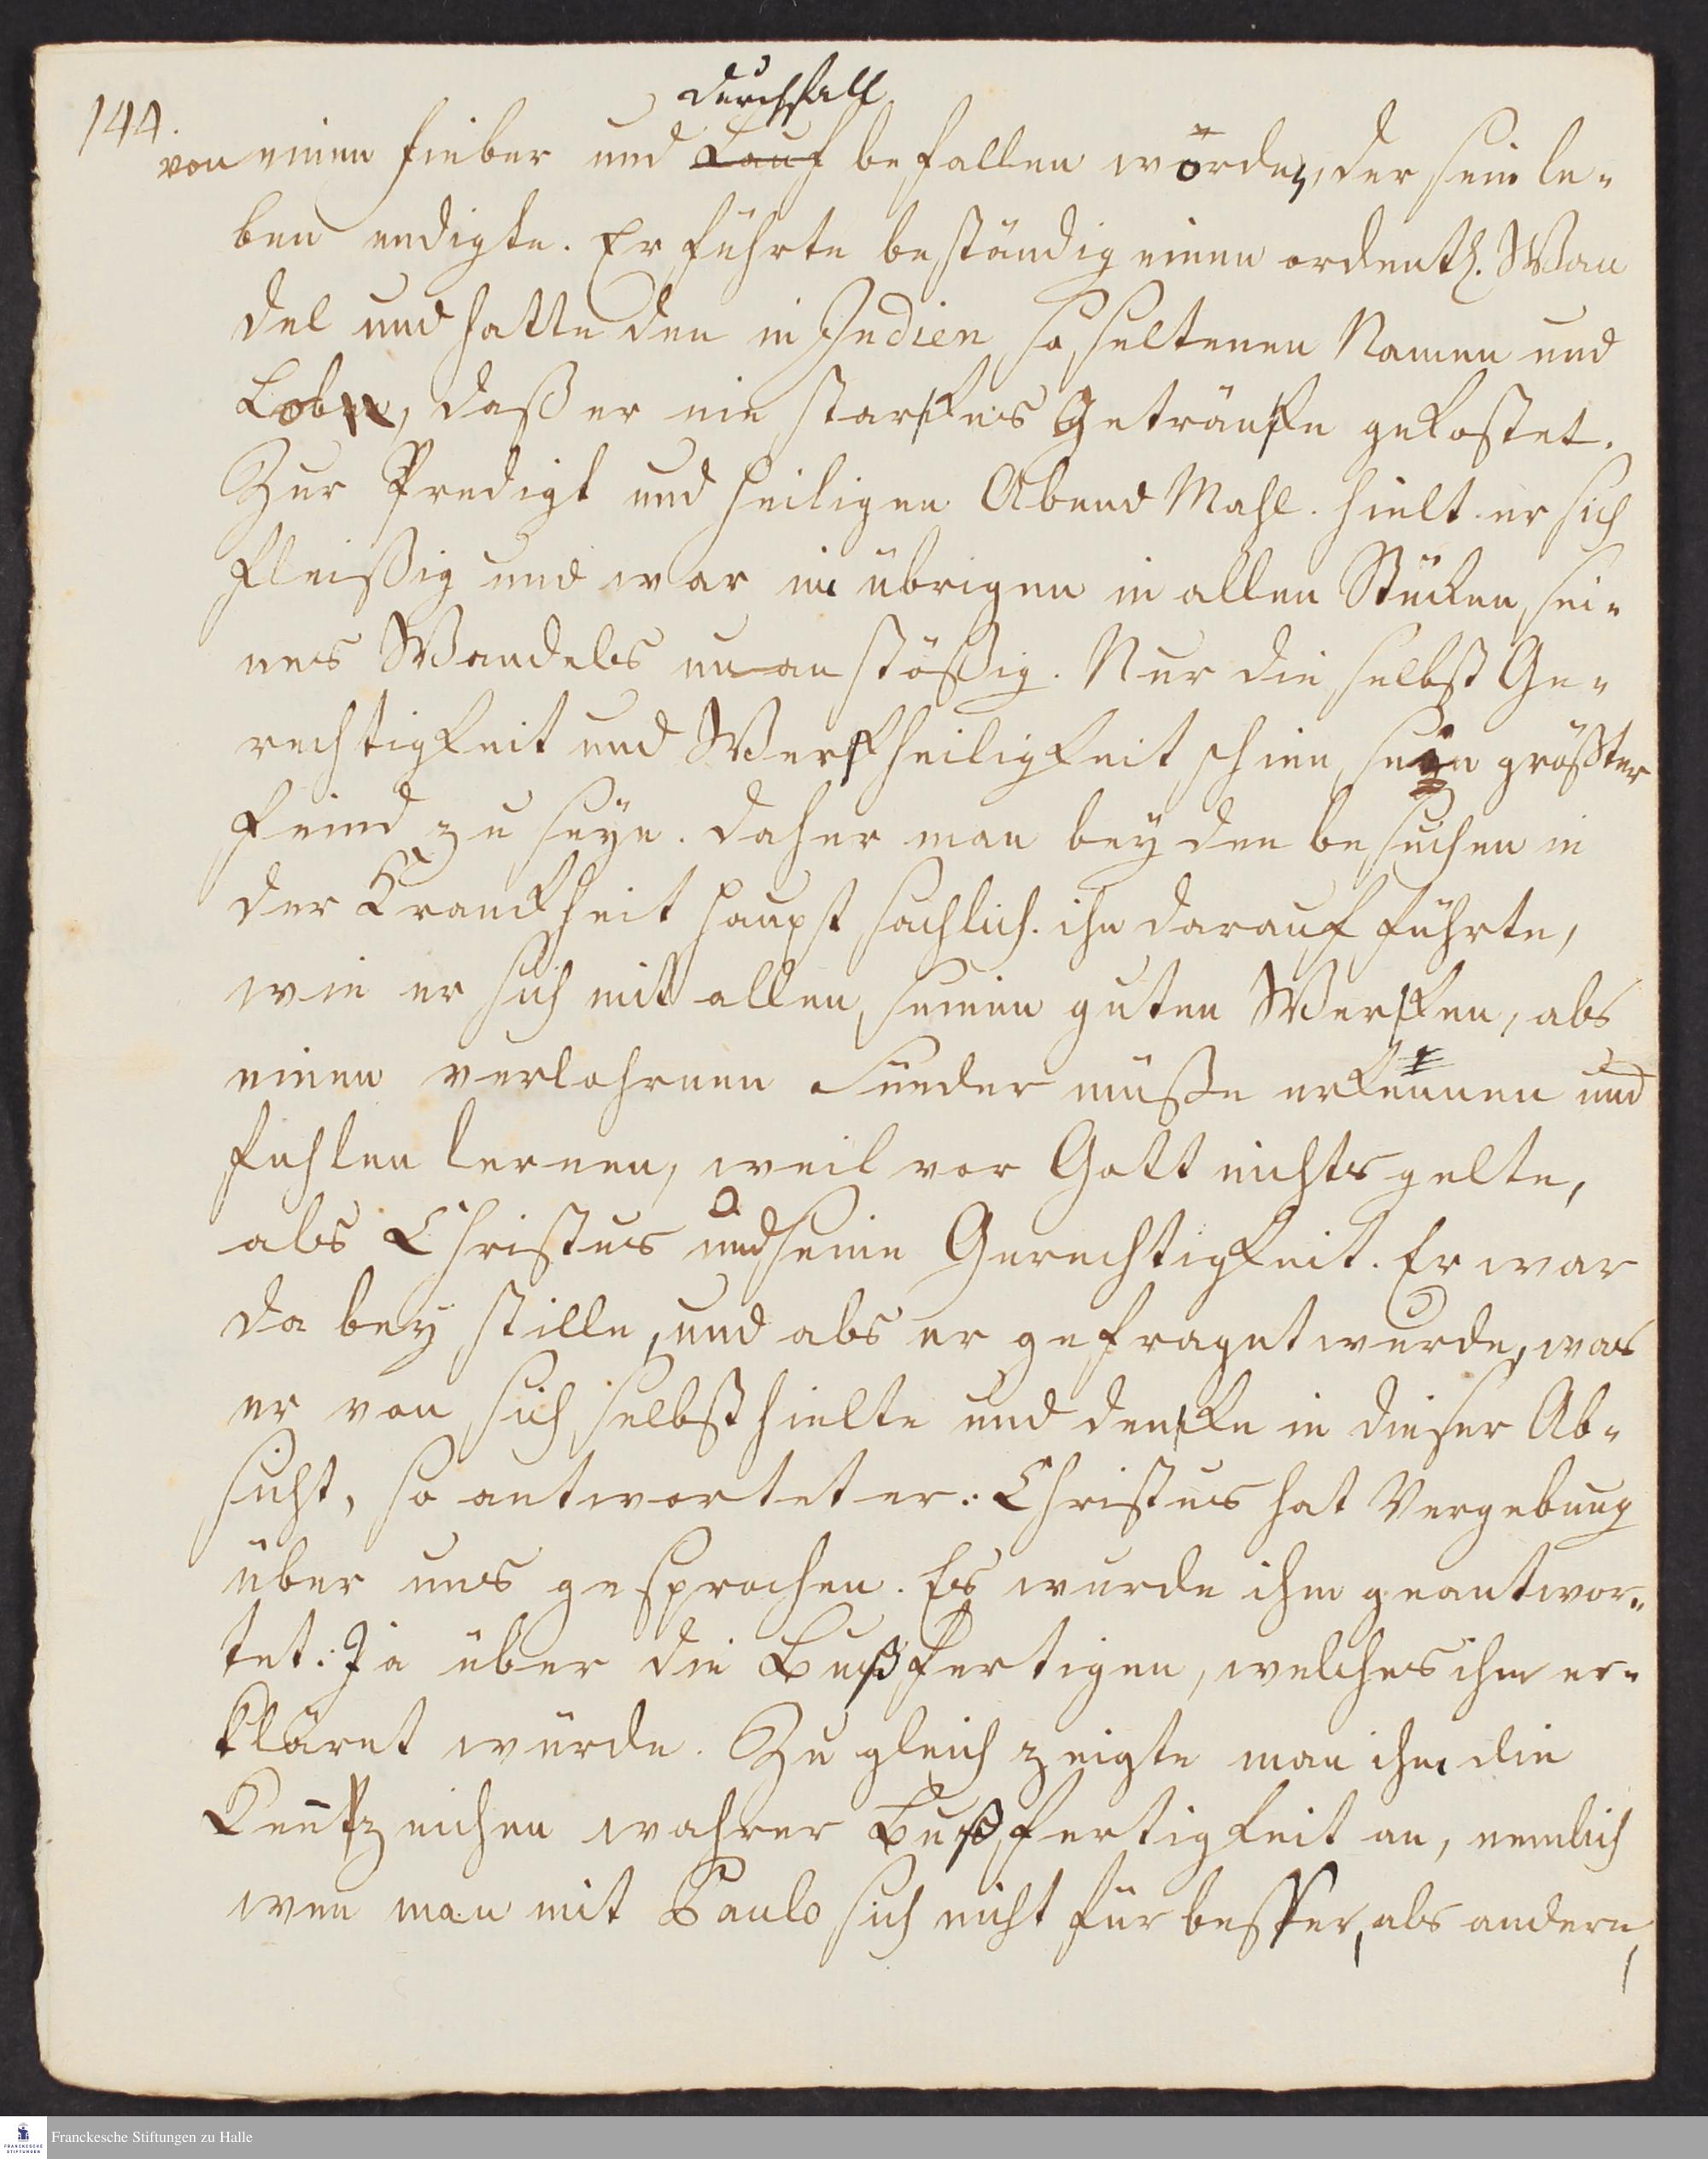 144.
Durchfall
von einen Fieber und Lauf befallen worden, der sein le-
ben endigte. Er führte beständig einen ordentl. Wan
del und hatte den in Indien so seltenen Namen und
Lob, daß er nie starkes Getränke gekostet.
Zur Predigt und heiligen Abend Mahl. hielt er sich
fleißig und war im übrigen in allen Stüken sei-
nes Wandels unanstößig. Nur die selbst Ge-
rechtigkeit und Werkheiligkeit schien sein größter
Feind zu seyn. Daher man bey den besuchen in
der Kranckheit haupst sachlich. ihn darauf führte,
wie er sich mit allen seinen guten Werken, als
einen verlohrnen Sünder müße erkennen und
fuhlen lernen, weil vor Gott nichts gelte,
als Christus und seine Gerechtigkeit. Er war
da bey stille, und als er gefraget wurde, was
er von sich selbst hielte und denke in dieser Ab-
sicht, so antwortet er: Christus hat Vergebung
über uns gesprochen. Es wurde ihm geantwor-
tet: Ja über die Bußfertigen, welches ihm er-
kläret würde. Zu gleich zeigte man ihm die
Kennzeichen wahrer Bußfertigkeit an, nemlich
wen man mit Paulo sich nicht für besser, als andern,
Franckesche Stiftungen zu Halle